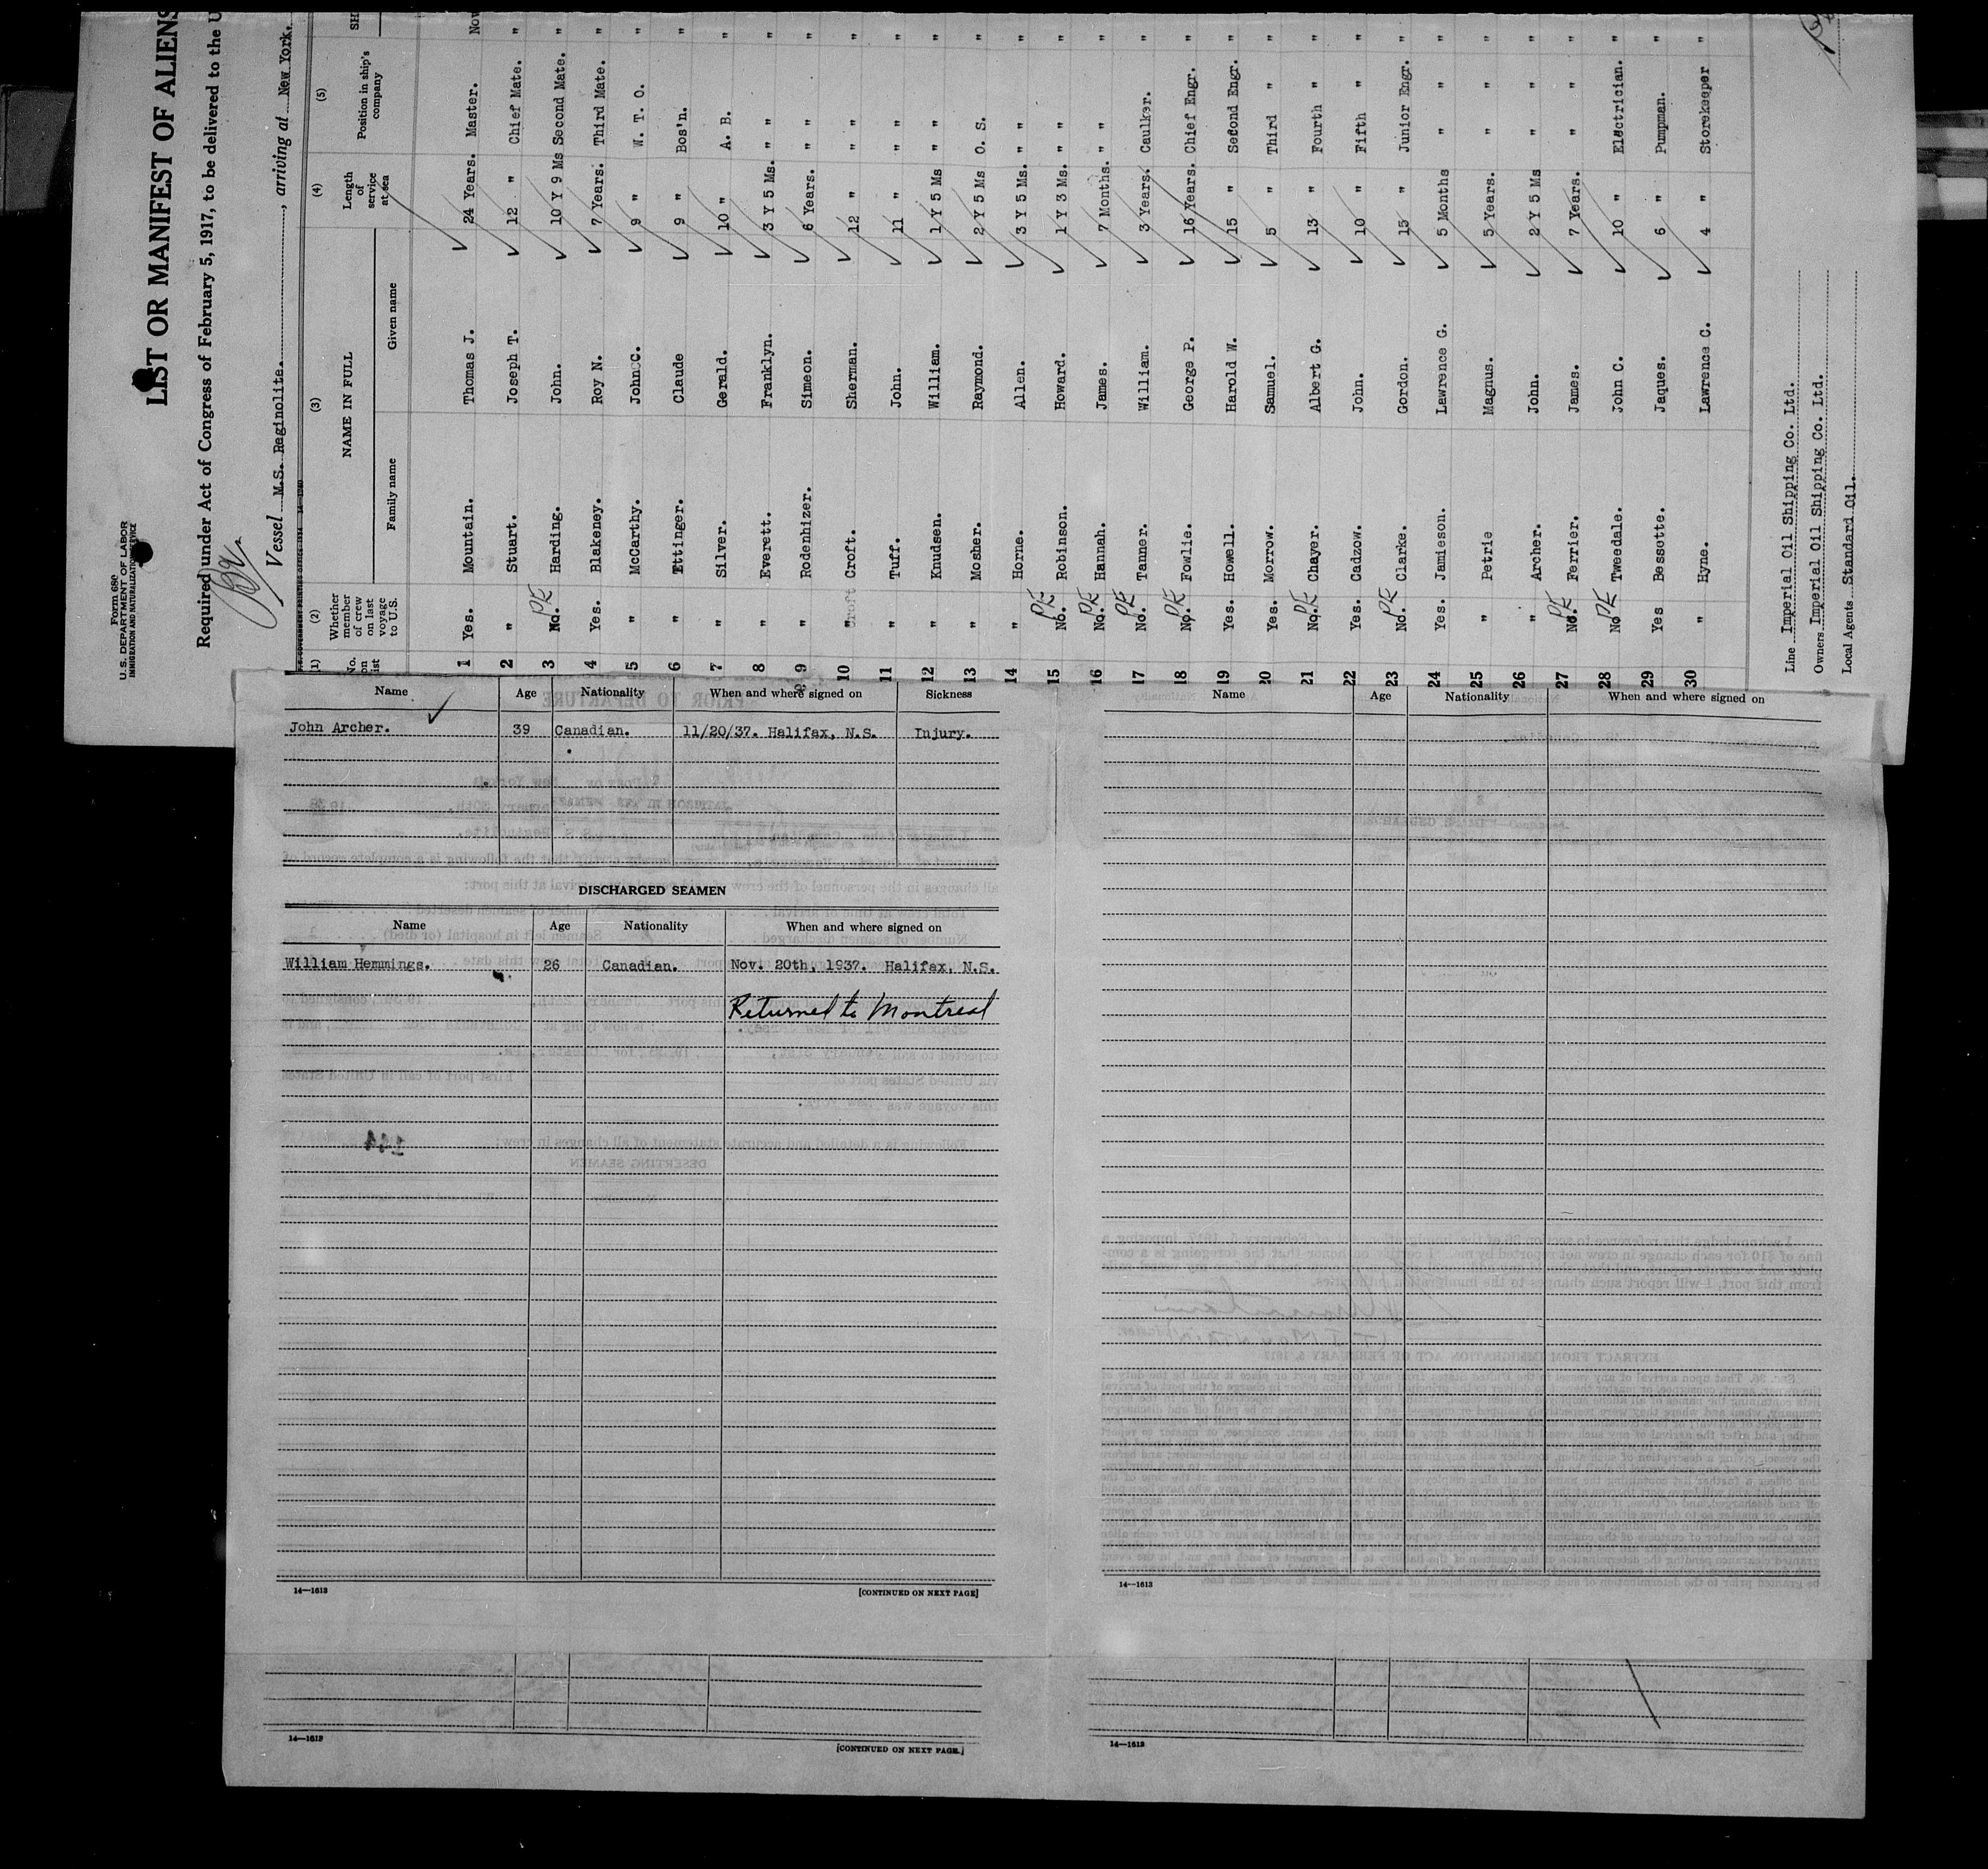 Form 680
U. S. DEPARTMENT OF LABOR
IMMIGRATION AND NATURALIZATION SERVICE
LIST OR MANIFEST OF ALIENS
Required under Act of Congress of February 5, 1917, to be delivered to the U
Vessel M.S. Reginolite. , arriving at New York.
(1) (2) (3) (4) (5)
No. on list Whether member of crew on last voyage to U.S. NAME IN FULL Length of service at sea Position in ship's company SH
Family name Given name
1 Yes. Mountain. Thomas J. 24 Years. Master. Nov
2 " Stuart. Joseph T. 12 " Chief Mate. "
3 No. PE Harding. John. 10 Y 9 Ms Second Mate. "
4 Yes. Blakeney. Roy N. 7 Years. Third Mate. "
5 " McCarthy. John C. 9 " W. T. O. "
6 " Ettinger. Claude 9 " Bos'n. "
7 " Silver. Gerald. 10 " A. B. "
8 " Everett. Franklyn. 3 Y 5 Ms. " " "
9 " Rodenhizer. Simeon. 6 Years. " " "
10 " Croft. Sherman. 12 " " " "
11 " Tuff. John. 11 " " " "
12 " Knudsen. William. 1 Y 5 Ms " " "
13 " Mosher. Raymond. 2 Y 5 Ms O. S. "
14 " Horne. Allen. 3 Y 5 Ms. " " "
15 No. PE Robinson. Howard. 1 Y 3 Ms. " " "
16 No. PE Hannah. James. 7 Months. " " "
17 No. PE Tanner. William. 3 Years. Caulker. "
18 No. PE Fowlie. George P. 16 Years. Chief Engr. "
19 Yes. Howell. Harold W. 15 " Second Engr. "
20 Yes. Morrow. Samuel. 5 " Third " "
21 No. PE Chayer. Albert G. 13 " Fourth " "
22 Yes. Cadzow. John. 10 " Fifth " "
23 No. PE Clarke. Gordon. 15 " Junior Engr. "
24 Yes. Jamieson. Lawrence G. 5 Months " " "
25 " Petrie Magnus. 5 Years. " " "
26 " Archer. John. 2 Y 5 Ms " " "
27 No. PE Ferrier. James. 7 Years. " " "
28 No PE Tweedale. John C. 10 " Electrician. "
29 Yes Bessette. Jaques. 6 " Pumpman. "
30 " Hyne. Lawrence C. 4 " Storekeeper "
Line Imperial Oil Shipping Co. Ltd.
Owners Imperial Oil Shipping Co. Ltd.
Local Agents Standard Oil.
Name Age Nationality When and where signed on Sickness
John Archer. 39 Canadian. 11/20/37. Halifax, N.S. Injury.
DISCHARGED SEAMEN
Name Age Nationality When and where signed on
William Hemmings. 26 Canadian. Nov. 20th, 1937. Halifax, N.S.
Returned to Montreal
14—1613 [CONTINUED ON NEXT PAGE]
Name Age Nationality When and where signed on
14—1613
14—1613 [CONTINUED ON NEXT PAGE.]
14—1613